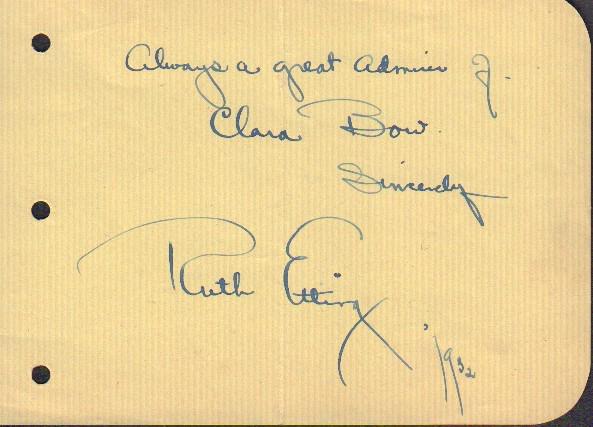 Always a great admirer of
Clara Bow.
Sincerely
Ruth Etting
1932